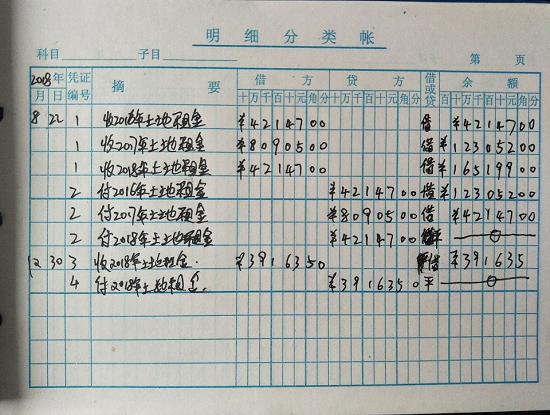 明细分类帐
科目 子目 第 页
2018年 凭证 摘要 借方 贷方 借或贷 余额
月 日 编号 十万千百十元角分 十万千百十元角分 百十万千百十元角分
8 22 1 收2016年土地租金 ¥4214700 借 ¥4214700
1 收2017年土地租金 ¥8090500 借 ¥12305200
1 收2018年土地租金 ¥4214700 借 ¥16519900
2 付2016年土地租金 ¥4214700 借 ¥12305200
2 付2017年土地租金 ¥8090500 借 ¥4214700
2 付2018年土地租金 ¥4214700 平 0
12 30 3 收2018年土地租金. ¥3916350 借 ¥391635
4 付2018年土地租金. ¥3916350 平 0